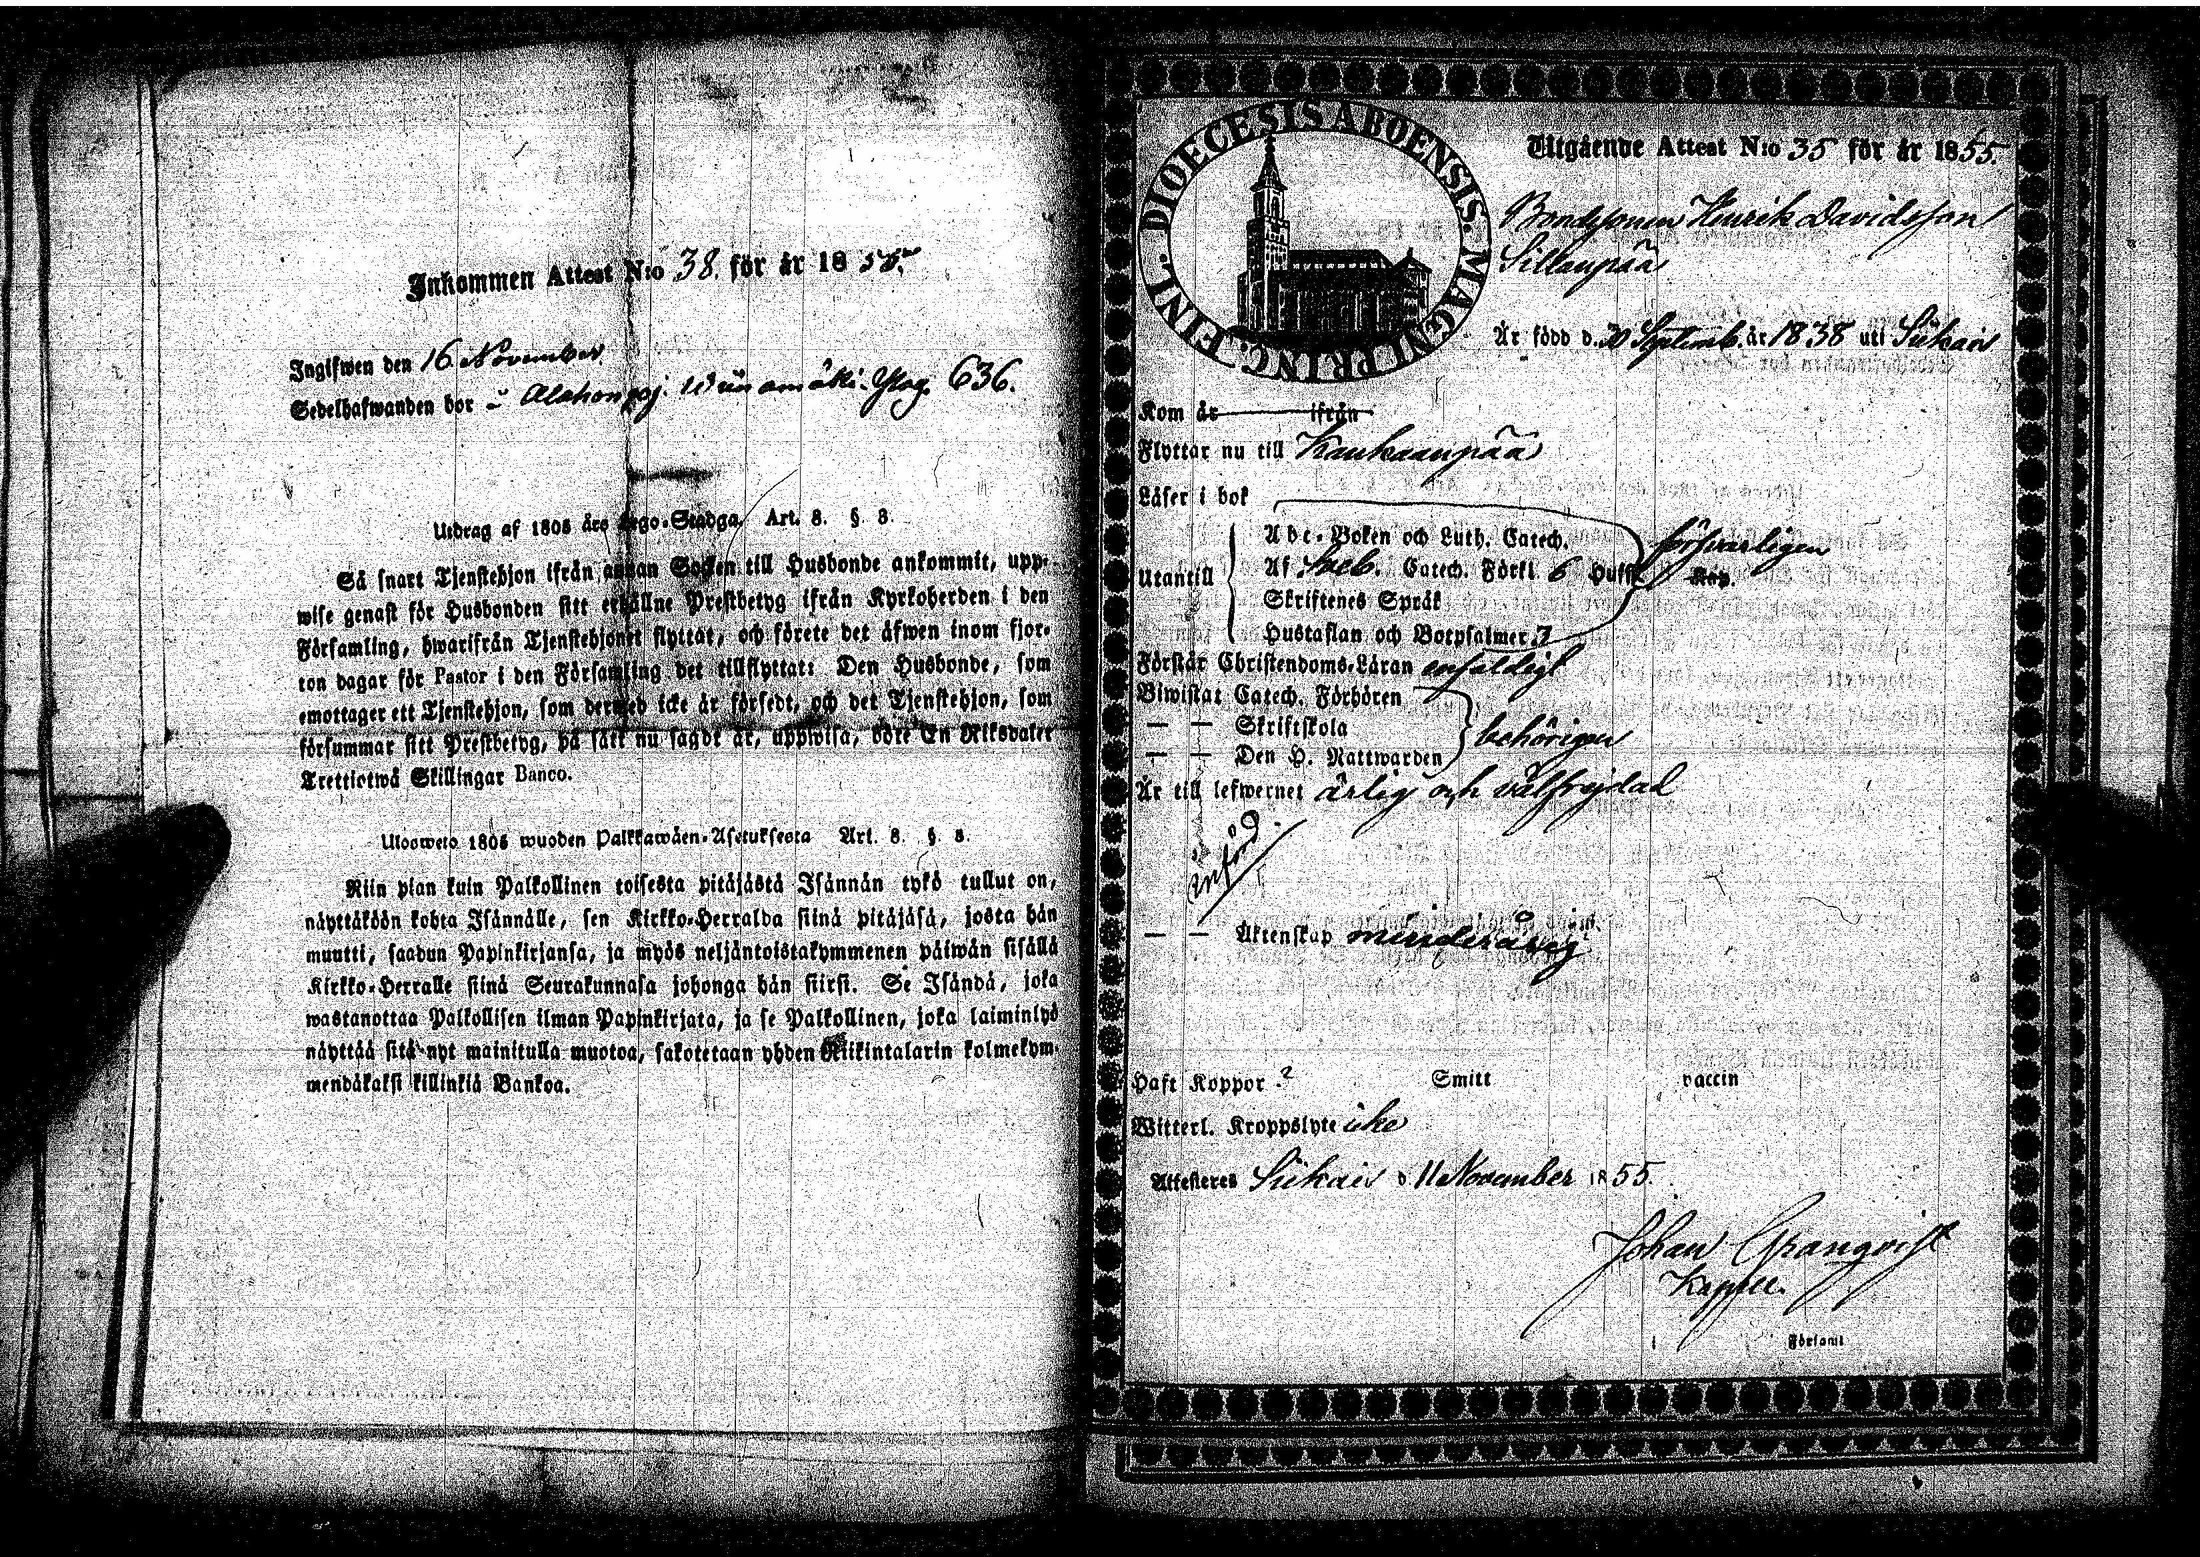 Inkommen Attest N:o 38. för år 1855.
Ingifwen den 16 November
Sedelhafwanden bor i Alahongoj. 636.
Utdrag af 1805 års Lego-Stadga Art. 8. § 3.
Så snart Tjenstehjon ifrån annan Socken till Husbonde ankommit, upp-
wise genast för Husbonden sitt erhållne Prestbetyg ifrån Kyrkoherden i den
Församling, hwarifrån Tjenstehjonet flyttat, och förete det äfwen inom fjor-
ton dagar för Pastor i den Församling det tillflyttat: Den Husbonde, som
emottager ett Tjenstehjon, som dermed icke är försedt, och det Tjenstehjon, som
försummar sitt Prestbetyg, på sätt nu sagdt är, uppwisa, böte En Riksdaler
Trettiotwå Skillingar Banco.
Ulosweto 1805 wuoden Palkkawäen-Asetuksesta Art. 8. § 3.
Niin pian kuin Palkollinen toisesta pitäjästä Isännän tykö tullut on,
näyttäköön kohta Isännälle, sen Kirkko-Herralda siinä pitäjäsä, josta hän
muutti, saadun Papinkirjansa, ja myös neljäntoistakymmenen päiwän sisällä
Kirkko-Herralle siinä Seurakunnasa johonga hän siirsi. Se Isändä, joka
wastanottaa Palkollisen ilman Papinkirjata, ja se Palkollinen, joka laiminlyö
näyttää sitä nyt mainitulla muotoa, sakotetaan yhden Riikintalarin kolmekym-
mendäkaksi killinkiä Bankoa.
DIOECESIS ABOENSIS. MAGNI PRINC. FINL.
Utgående Attest N:o 35 för år 1855.
Bondesonen Henrik Davidsson
Sillanpää
Är född d. 30 Septemb. år 1838 uti Siikais
Kom år ifrån
Flyttar nu till Kankaanpää
Läser i bok
Utantill
Abc-Boken och Luth. Catech. försvarligen
Af Sveb. Catech. Förkl 6 Hufst. Kap.
Skriftenes Språk
Hustaflan och Botpsalmer 7
Förstår Christendoms-Läran enfaldigt
Biwistat Catech. Förhören
— — Skriftskola behörigen
— — Den H. Nattwarden
Är till lefwernet ärlig och välfrejdad
införd.
— — Äktenskap minderårig
Haft Koppor ? Smitt vaccin
Witterl. Kroppslyte icke
Attesteres Siikais d. 11 November 1855.
Johan Granqvist
Kapell.
i Församl